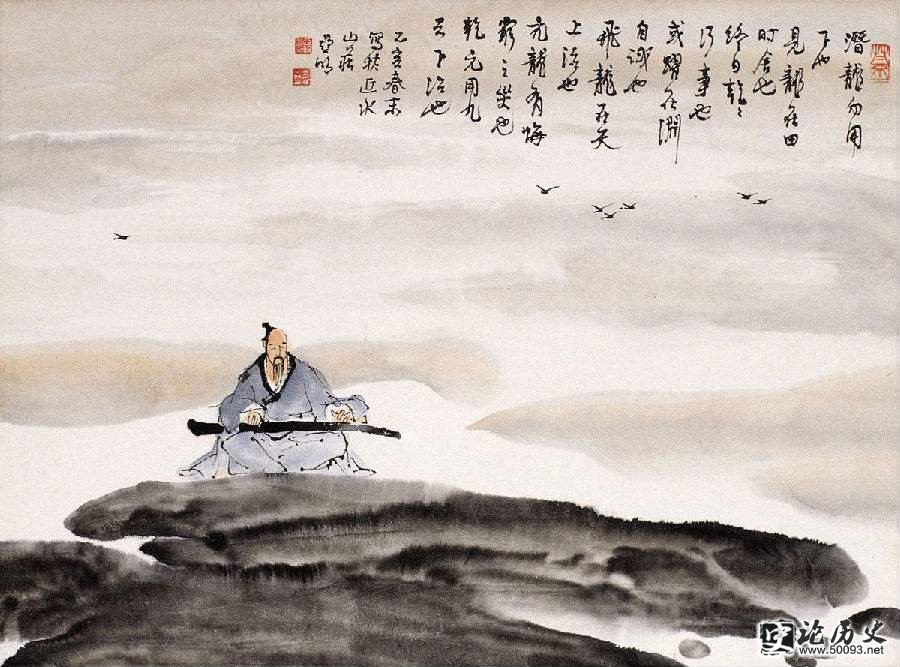 潛龍勿用
下也
見龍在田
時舍也
終日乾〻
行事也
或躍在淵
自試也
飛龍在天
上治也
亢龍有悔
窮之災也
乾元用九
天下治也
乙亥春末
寫於近水
山莊
亞明
论历史
www.50093.net